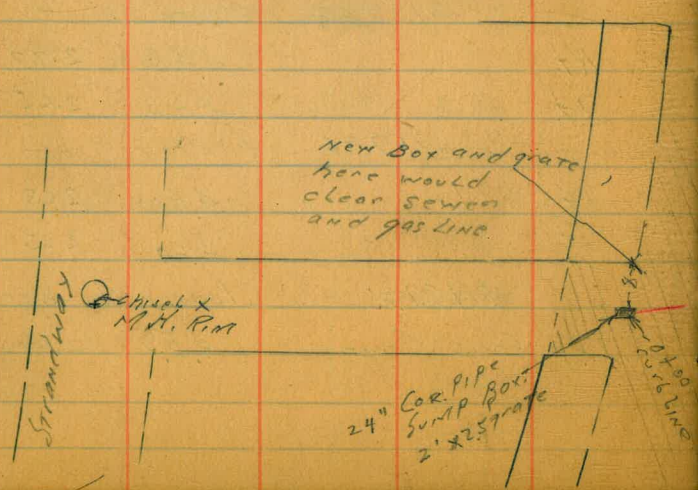 New Box and grate
here would
clear sewer
and gas line
8'
Strandway
Chisel X
M.H. Rim
24" Cor. Pipe
Sump Box.
2' x 2.5 grate
0+00
Curb Line